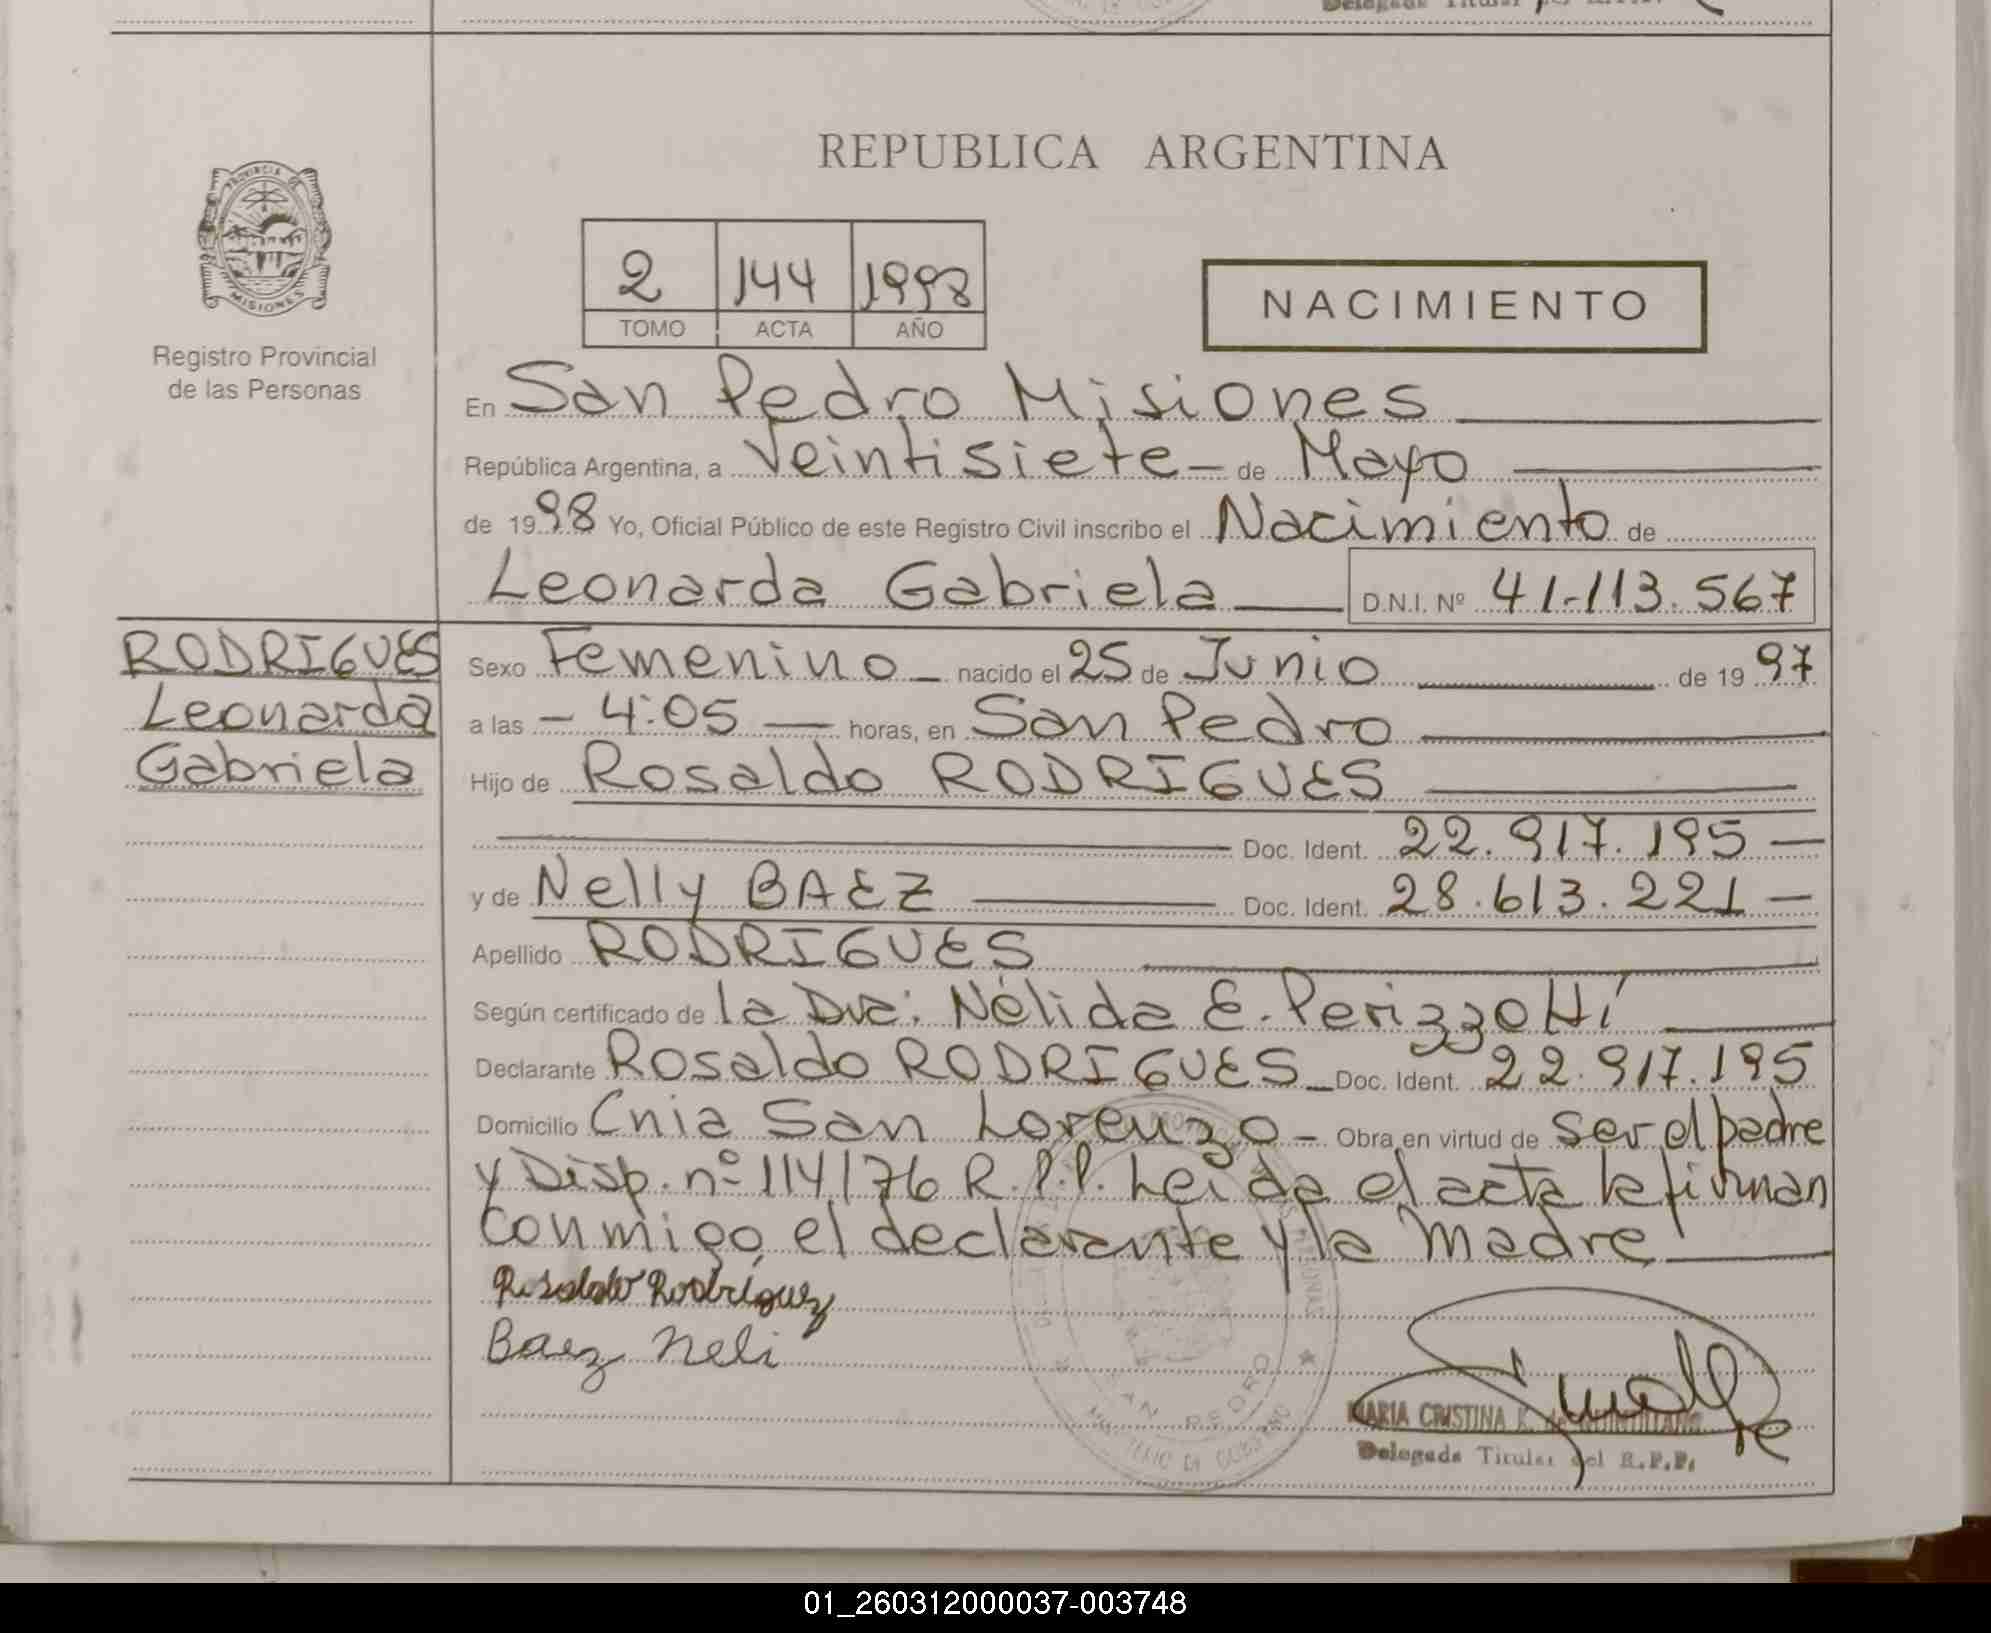 REPUBLICA ARGENTINA
PROVINCIA DE
MISIONES
Registro Provincial
de las Personas
2 144 1998
TOMO ACTA AÑO
NACIMIENTO
En San Pedro Misiones
República Argentina, a Veintisiete - de Mayo
de 1998 Yo, Oficial Público de este Registro Civil inscribo el Nacimiento de
Leonarda Gabriela D.N.I. Nº 41.113.567
RODRIGUES
Leonarda
Gabriela
Sexo Femenino - nacido el 25 de Junio de 1997
a las - 4:05 - horas, en San Pedro
Hijo de Rosaldo RODRIGUES
Doc. Ident. 22.917.195 -
y de Nelly BAEZ Doc. Ident. 28.613.221 -
Apellido RODRIGUES
Según certificado de la Dra: Nélida E. Perizzotti
Declarante Rosaldo RODRIGUES - Doc. Ident. 22.917.195
Domicilio Cnia San Lorenzo - Obra en virtud de ser el padre
y Disp. nº 114/76 R.P.P. Leida el acta la firman
conmigo el declarante y la madre
Rosaldo Rodriguez
Baez Neli
SAN PEDRO
MARIA CRISTINA K. de
Delegada Titular del R.P.P.
01_260312000037-003748